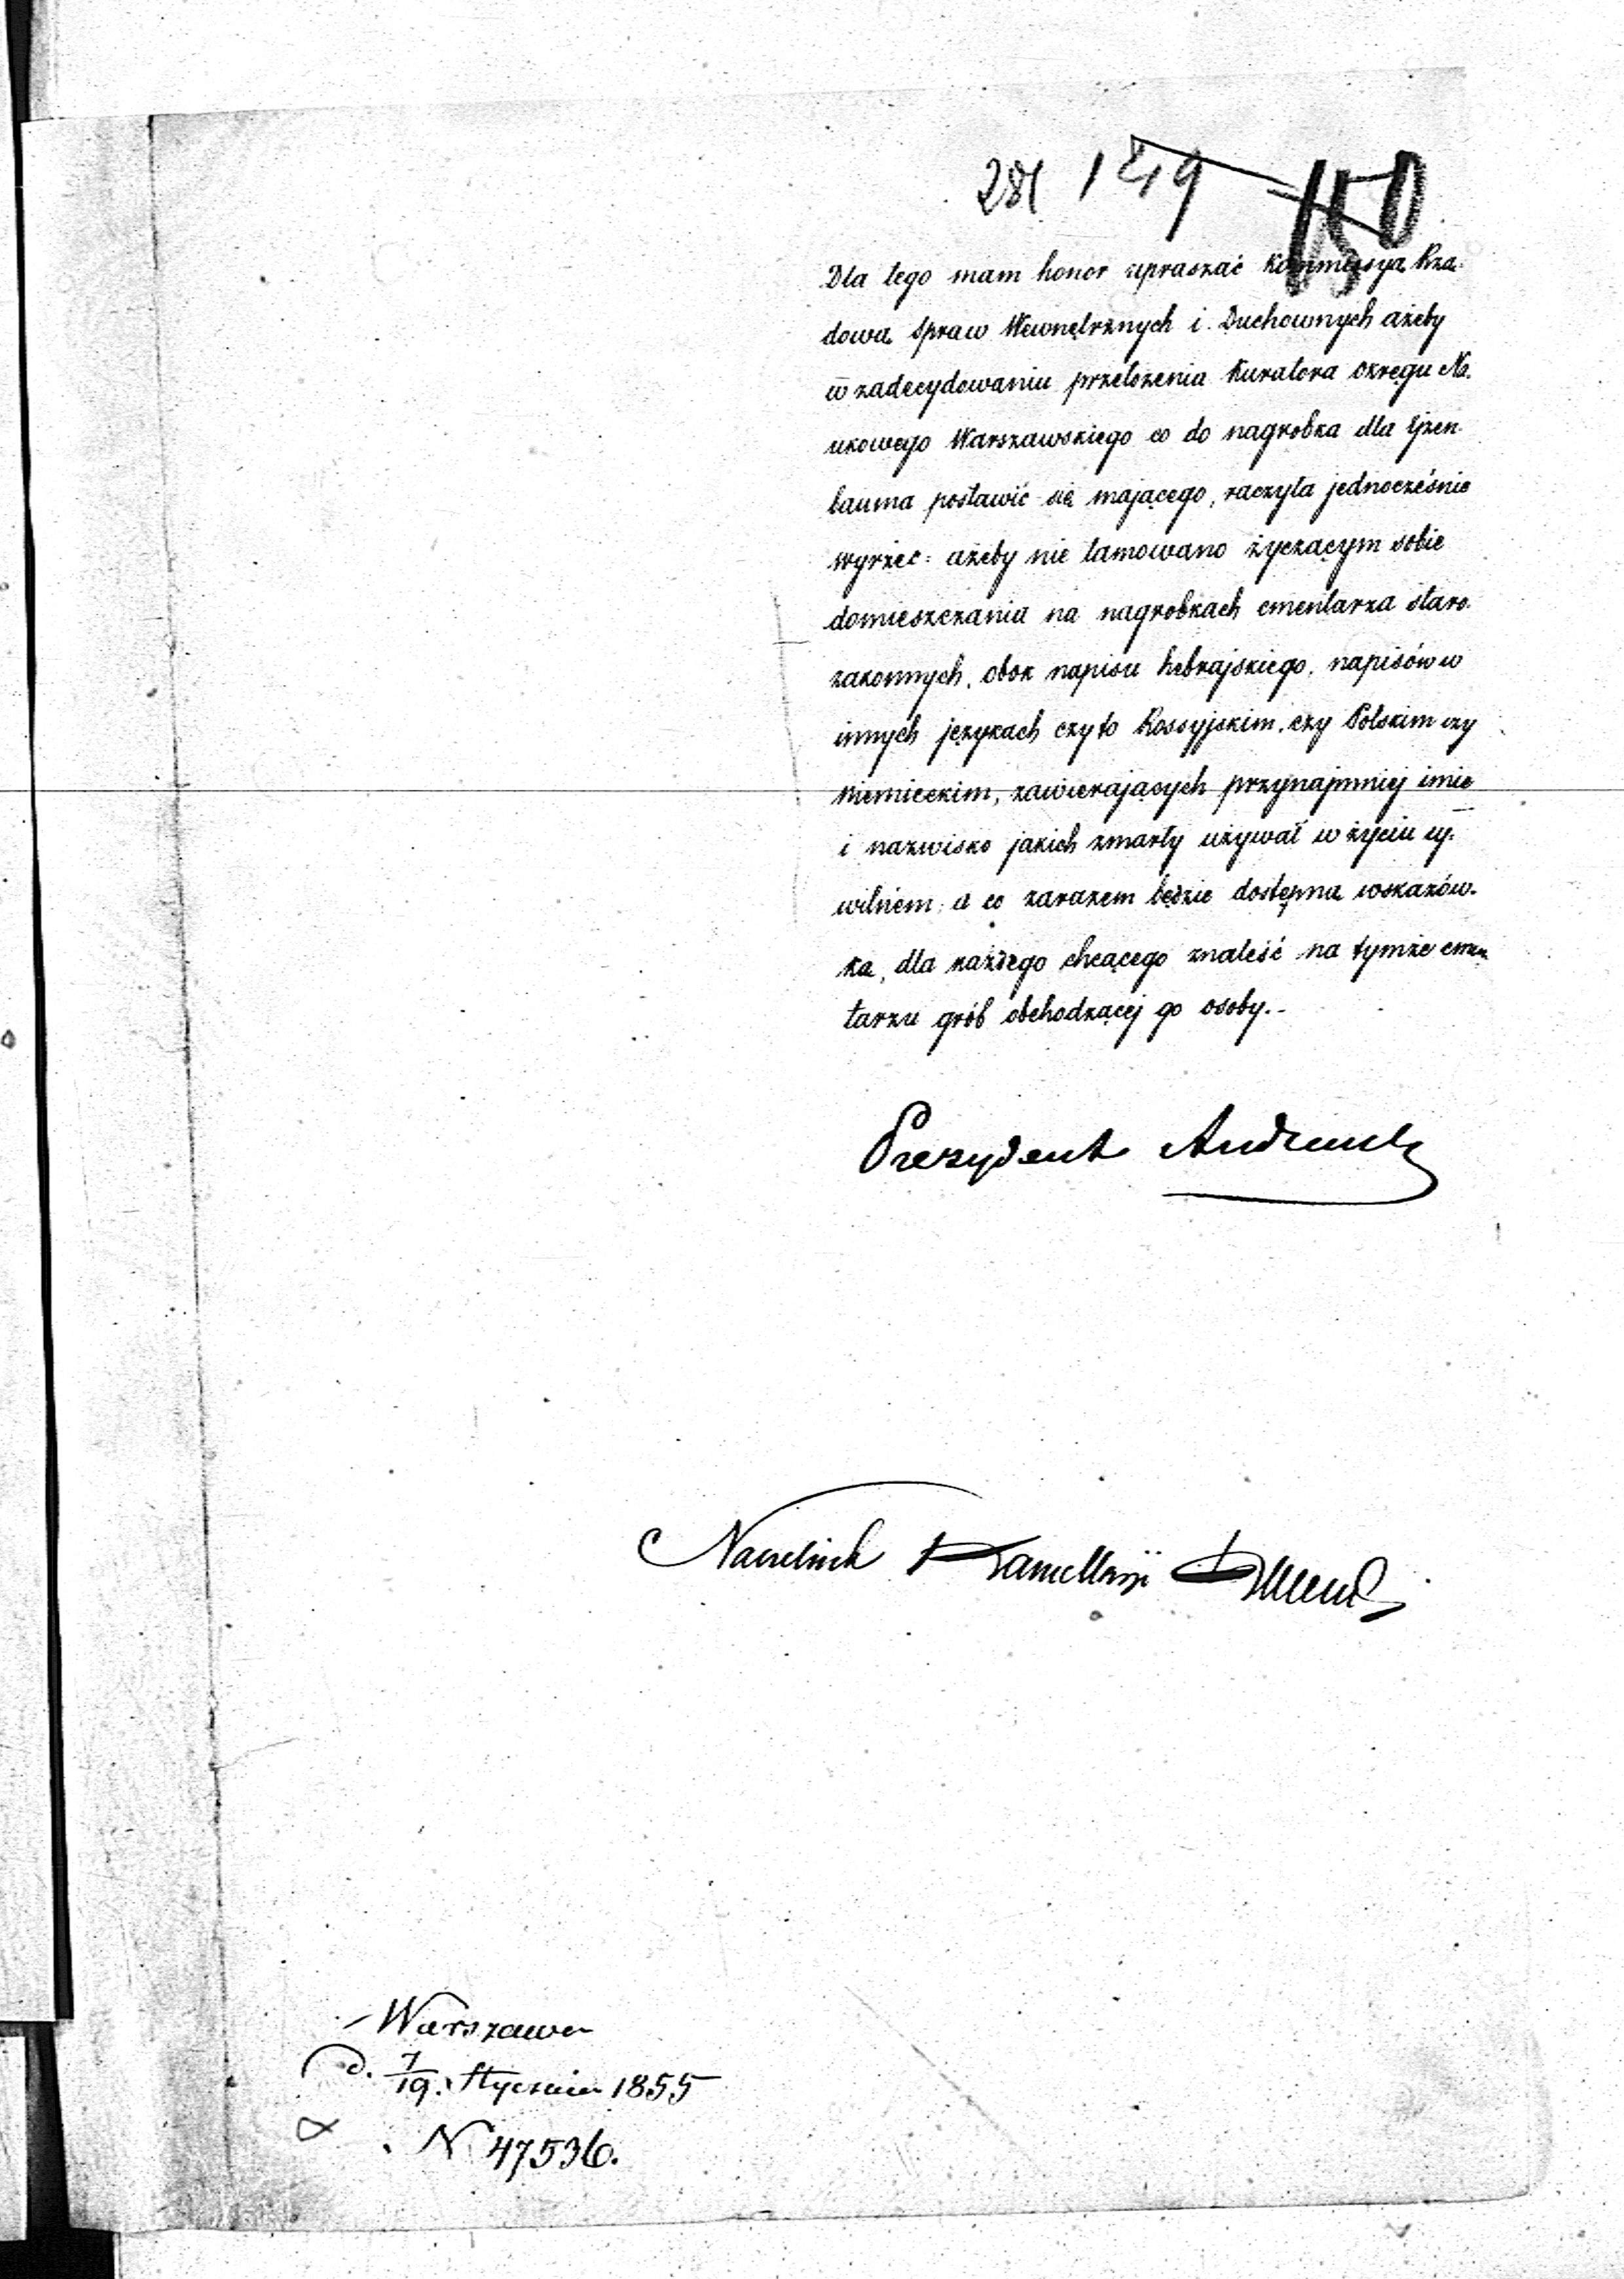 149 150
Dla tego mam honor upraszać Kommissyą Rzą-
dową Spraw Wewnętrznych i Duchownych ażeby
w zadecydowaniu przełożenia Kuratora Okręgu Na-
ukowego Warszawskiego co do nagrobka dla Ejzen-
bauma postawić się mającego, raczyła jednocześnie
wyrzec: ażeby nie tamowano życzącym sobie
domieszczania na nagrobkach cmentarza staro-
zakonnych, obok napisu hebrajskiego, napisów w
innych językach czy to Rossyjskim, czy Polskim czy
niemieckim, zawierających przynajmniej imie
i nazwisko jakich zmarły używał w życiu cy-
wilnem, a co zarazem będzie dostępną wskazów-
ką, dla każdego chcącego znaleść na tymże cmen
tarzu grób obchodzącej go osoby.-
Prezydent Andrault
Naczelnik Kancellaryi
Warszawa
d. 7/19. Stycznia 1855
N 47536.